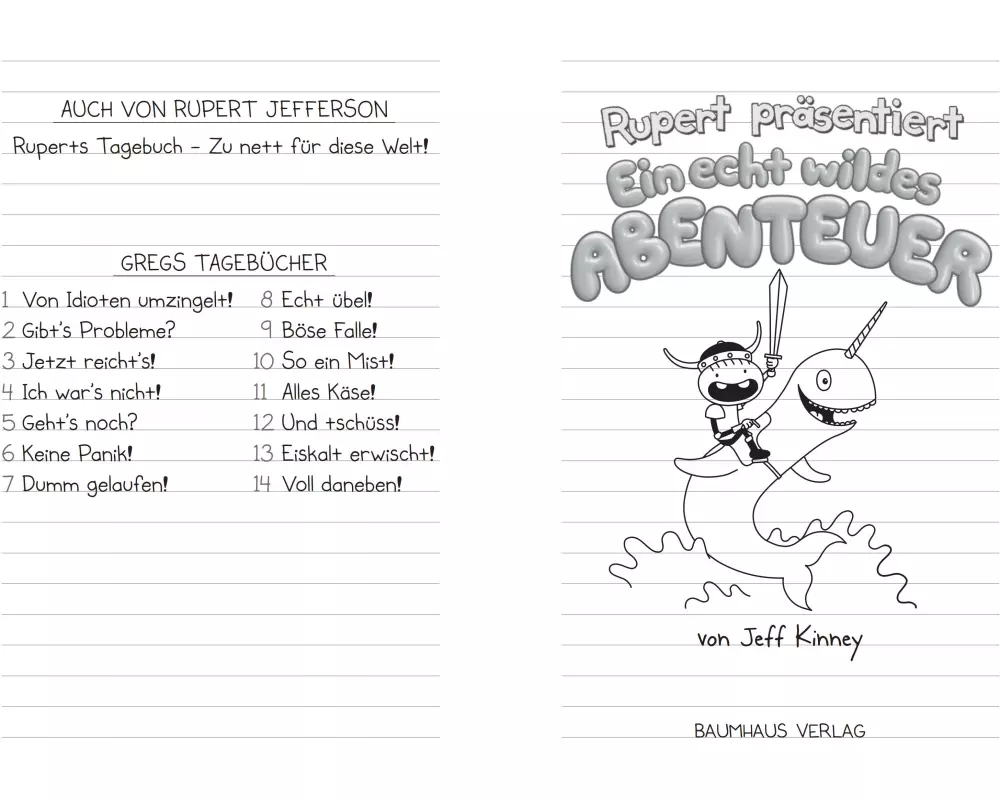 AUCH VON RUPERT JEFFERSON
Ruperts Tagebuch – Zu nett für diese Welt!
GREGS TAGEBÜCHER
1 Von Idioten umzingelt!
2 Gibt's Probleme?
3 Jetzt reicht's!
4 Ich war's nicht!
5 Geht's noch?
6 Keine Panik!
7 Dumm gelaufen!
8 Echt übel!
9 Böse Falle!
10 So ein Mist!
11 Alles Käse!
12 Und tschüss!
13 Eiskalt erwischt!
14 Voll daneben!
Rupert präsentiert
Ein echt wildes
ABENTEUER
von Jeff Kinney
BAUMHAUS VERLAG